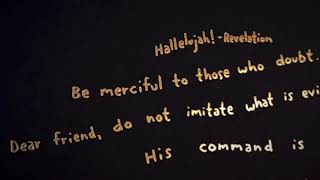 Hallelujah! -Revelation
Be merciful to those who doubt.
Dear friend, do not imitate what is evi
His command is